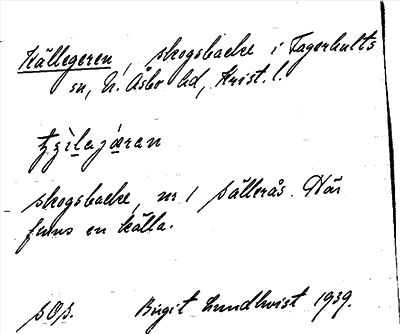 Källegeren, skogsbacke i Fagerhults
sn, N. Åsbo hd, Krist. l.
skogsbacke, nr 1 Sällerås. Här
finns en källa.
SOS. Birgit Lundkvist 1939.